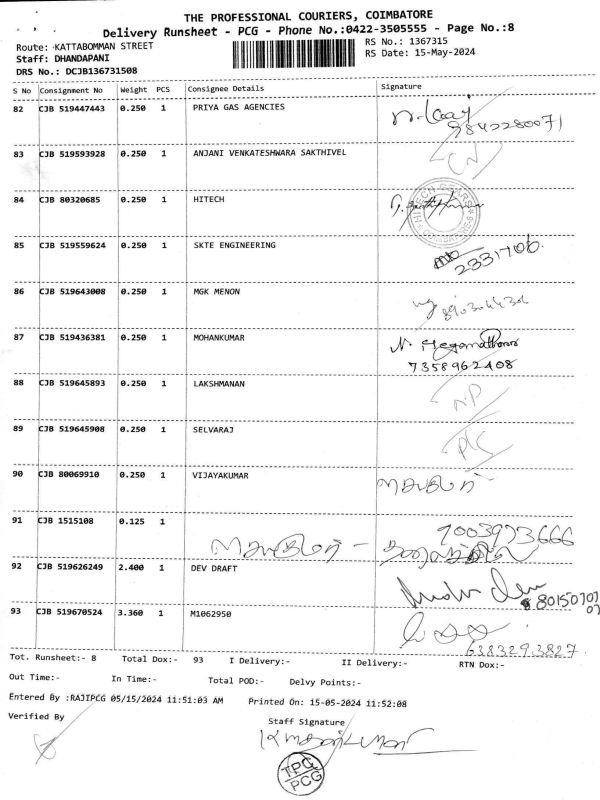 THE PROFESSIONAL COURIERS, COIMBATORE
Delivery Runsheet - PCG - Phone No.:0422-3505555 - Page No.:8
Route: KATTABOMMAN STREET
RS No.: 1367315
Staff: DHANDAPANI
RS Date: 15-May-2024
DRS No.: DCJB136731508
S No Consignment No Weight PCS Consignee Details Signature
82 CJB 519447443 0.250 1 PRIYA GAS AGENCIES
9842280071
83 CJB 519593928 0.250 1 ANJANI VENKATESHWARA SAKTHIVEL
84 CJB 80320685 0.250 1 HITECH
HITECH GEARS
85 CJB 519559624 0.250 1 SKTE ENGINEERING
2331706.
86 CJB 519643008 0.250 1 MGK MENON
87 CJB 519436381 0.250 1 MOHANKUMAR
7358962408
88 CJB 519645893 0.250 1 LAKSHMANAN
89 CJB 519645908 0.250 1 SELVARAJ
90 CJB 80069910 0.250 1 VIJAYAKUMAR
91 CJB 1515108 0.125 1
7003973666
92 CJB 519626249 2.400 1 DEV DRAFT
93 CJB 519670524 3.360 1 M1062950
6383293827
Tot. Runsheet:- 8 Total Dox:- 93 I Delivery:- II Delivery:- RTN Dox:-
Out Time:- In Time:- Total POD:- Delvy Points:-
Entered By :RAJIPCG 05/15/2024 11:51:03 AM Printed On: 15-05-2024 11:52:08
Verified By Staff Signature
TPC
PCG